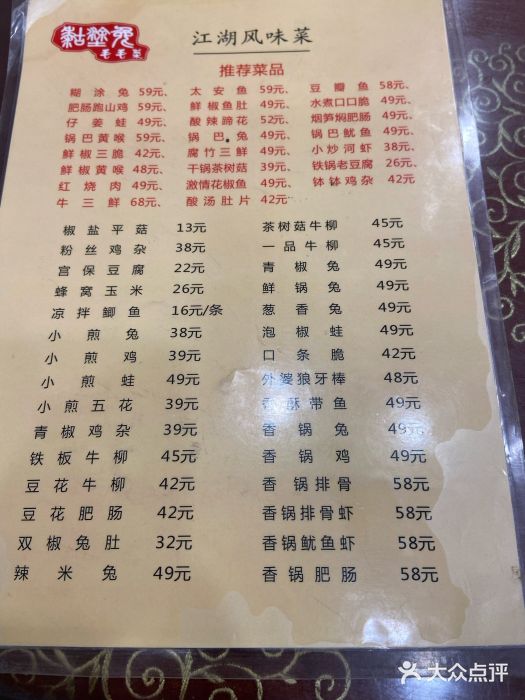 黏涂兔
毛毛菜
江湖风味菜
推荐菜品
糊涂兔 59元、 太安鱼 59元、 豆瓣鱼 58元、
肥肠跑山鸡 59元、 鲜椒鱼肚 49元、 水煮口口脆 49元、
仔姜蛙 49元、 酸辣蹄花 52元、 烟笋焖肥肠 49元、
锅巴黄喉 59元、 锅巴兔 49元、 锅巴鱿鱼 49元、
鲜椒三脆 42元、 腐竹三鲜 49元、 小炒河虾 38元、
鲜椒黄喉 48元、 干锅茶树菇 39元、 铁锅老豆腐 26元、
红烧肉 49元、 激情花椒鱼 49元、 钵钵鸡杂 42元、
牛三鲜 68元、 酸汤肚片 42元、
椒盐平菇 13元 茶树菇牛柳 45元
粉丝鸡杂 38元 一品牛柳 45元
宫保豆腐 22元 青椒兔 49元
蜂窝玉米 26元 鲜锅兔 49元
凉拌鲫鱼 16元/条 葱香兔 49元
小煎兔 38元 泡椒蛙 49元
小煎鸡 39元 口条脆 42元
小煎蛙 49元 外婆狼牙棒 48元
小煎五花 39元 酥带鱼 49元
青椒鸡杂 39元 香锅兔 49元
铁板牛柳 45元 香锅鸡 49元
豆花牛柳 42元 香锅排骨 58元
豆花肥肠 42元 香锅排骨虾 58元
双椒兔肚 32元 香锅鱿鱼虾 58元
辣米兔 49元 香锅肥肠 58元
大众点评